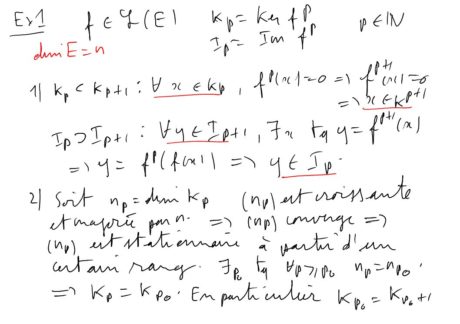 Ex1 f ∈ ℒ(E) Kp = Ker f^p p ∈ ℕ
dim E = n Ip = Im f^p
1) Kp ⊂ Kp+1 : ∀ x ∈ Kp, f^p(x) = 0 ⇒ f^{p+1}(x) = 0
⇒ x ∈ K^{p+1}
Ip ⊃ Ip+1 : ∀ y ∈ Ip+1, ∃ x tq y = f^{p+1}(x)
⇒ y = f^p(f(x)) ⇒ y ∈ Ip.
2) Soit np = dim Kp (np) est croissante
et majorée par n. ⇒ (np) converge ⇒
(np) est stationnaire à partir d'un
certain rang. ∃ p₀ tq ∀p ⩾ p₀ np = np₀.
⇒ Kp = Kp₀. En particulier Kp₀ = Kp₀+1